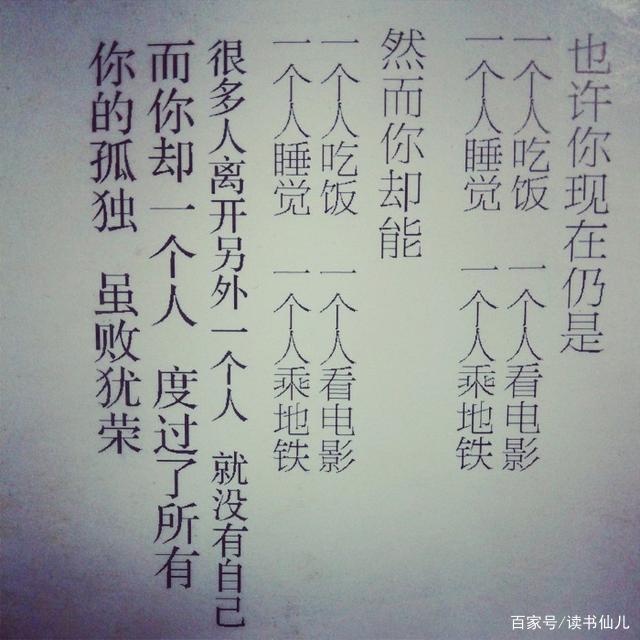 也许你现在仍是
一个人吃饭 一个人看电影
一个人睡觉 一个人乘地铁
然而你却能
一个人吃饭 一个人看电影
一个人睡觉 一个人乘地铁
很多人离开另外一个人 就没有自己
而你却一个人 度过了所有
你的孤独 虽败犹荣
百家号/读书仙儿